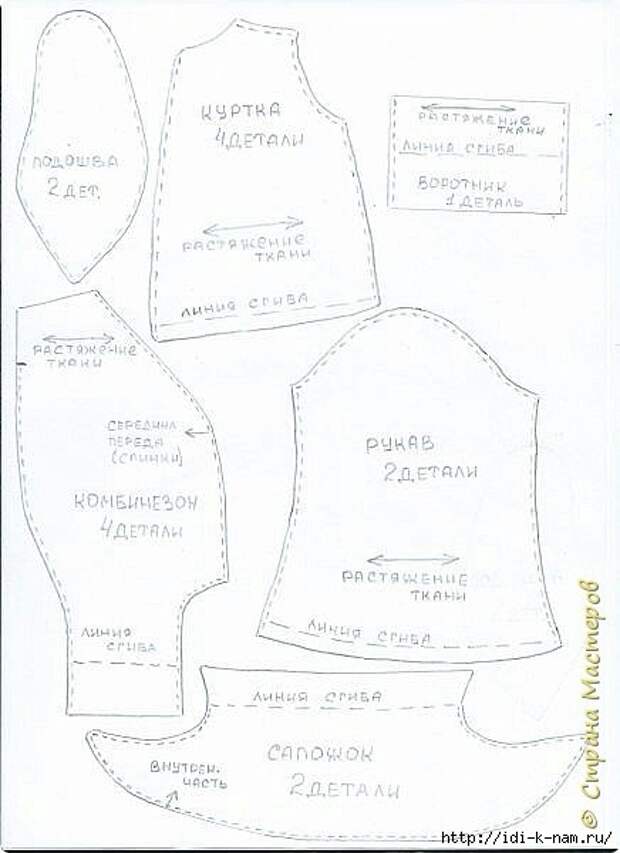 ПОДОШВА
2 ДЕТ.
КУРТКА
4 ДЕТАЛИ
РАСТЯЖЕНИЕ
ТКАНИ
ЛИНИЯ СГИБА
РАСТЯЖЕНИЕ
ТКАНИ
ЛИНИЯ СГИБА
ВОРОТНИК
1 ДЕТАЛЬ
РАСТЯЖЕНИЕ
ТКАНИ
СЕРЕДИНА
ПЕРЕДА
(СПИНКИ)
КОМБИНЕЗОН
4 ДЕТАЛИ
ЛИНИЯ
СГИБА
РУКАВ
2 ДЕТАЛИ
РАСТЯЖЕНИЕ
ТКАНИ
ЛИНИЯ СГИБА
ЛИНИЯ СГИБА
САПОЖОК
2 ДЕТАЛИ
ВНУТРЕН.
ЧАСТЬ
© Страна Мастеров
http://idi-k-nam.ru/